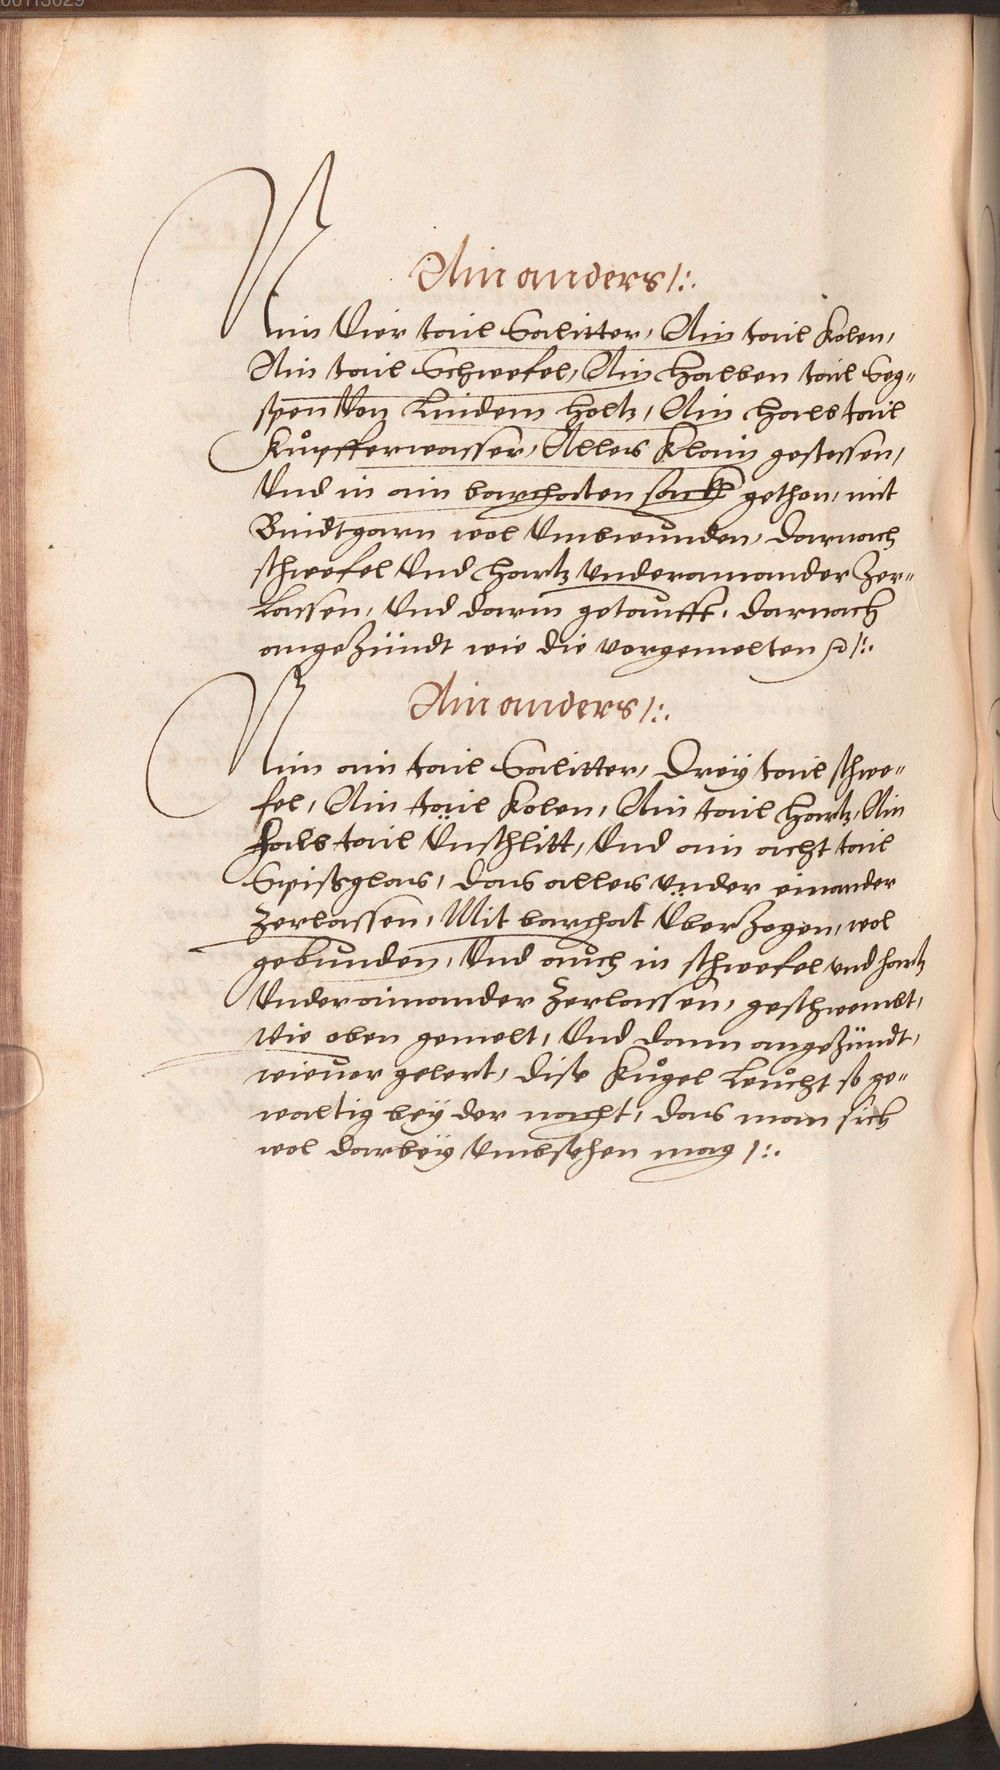 00113029
Ain anders /:.
Nim Vier tail Salitter, Ain tail Kolen,
Ain tail Schwefel, Ain halben tail Seg-
spen Von Lindem holtz, Ain halb tail
Kupfferwasser, Alles klain gestossen,
Vnd in ain barchaten sackh gethon, mit
Bindtgarn wol Vmbwunden, darnach
schwefel Vnd hartz Vnderainander Zer-
lassen, Vnd darin getaufft, darnach
angeZündt wie die vorgemelten /:.
Ain anders /:.
Nim ain tail Salitter, Drey tail schwe-
fel, Ain tail Kolen, Ain tail hartz, Ain
halb tail Vnschlitt, Vnd ain acht tail
Spißglas, das alles vnder einander
Zerlassen, Mit barchat ÜberZogen, wol
gebunden, Vnd auch in schwefel vnd hartz
Vnderainander Zerlassen, geschwembt,
Wie oben gemelt, Vnd dann angeZündt,
wieuor gelert, diße Kugel leucht so ge-
waltig bey der nacht, das man sich
wol darbey Vmbsehen mag /:.